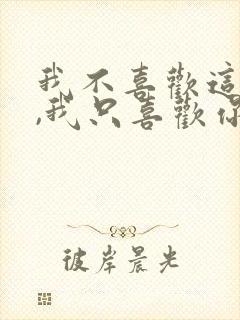 我不喜歡這
,我只喜歡你
彼岸晨光